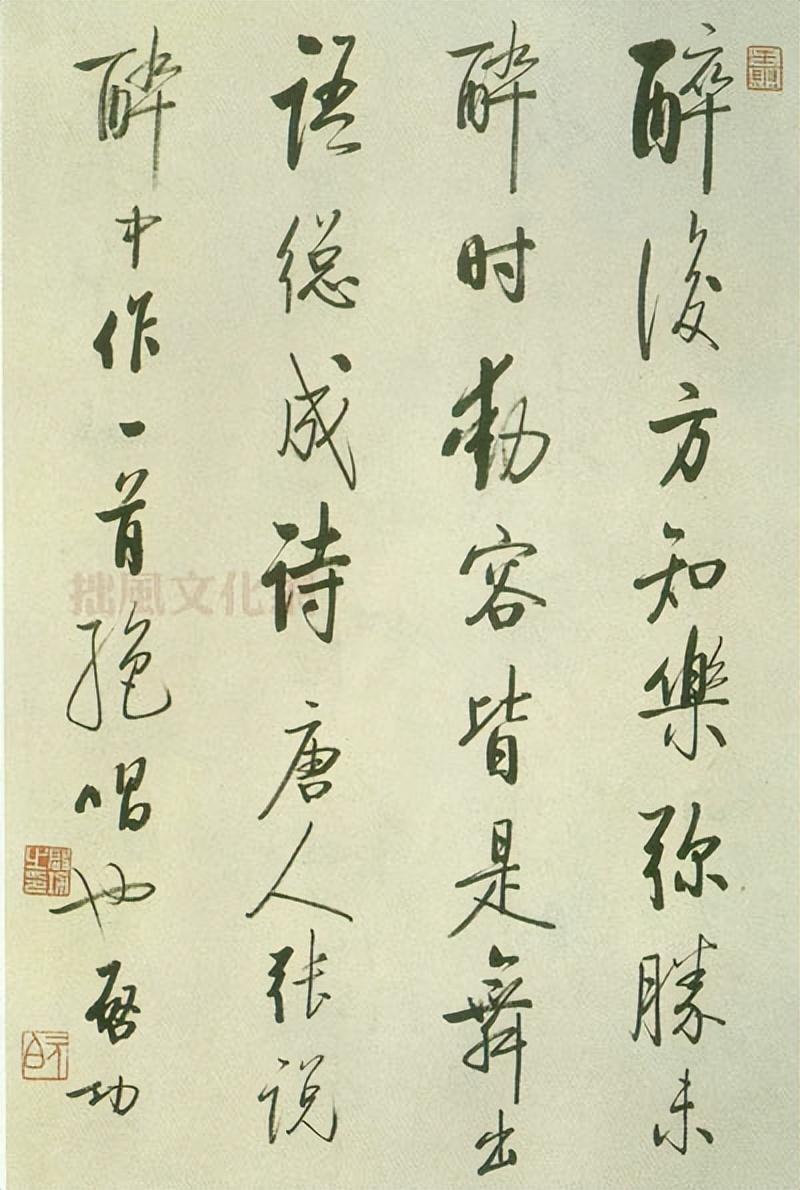 醉後方知樂弥勝未
醉时動容皆是舞出
语總成诗 唐人张说
醉中作一首绝唱也 啓功
拙風文化